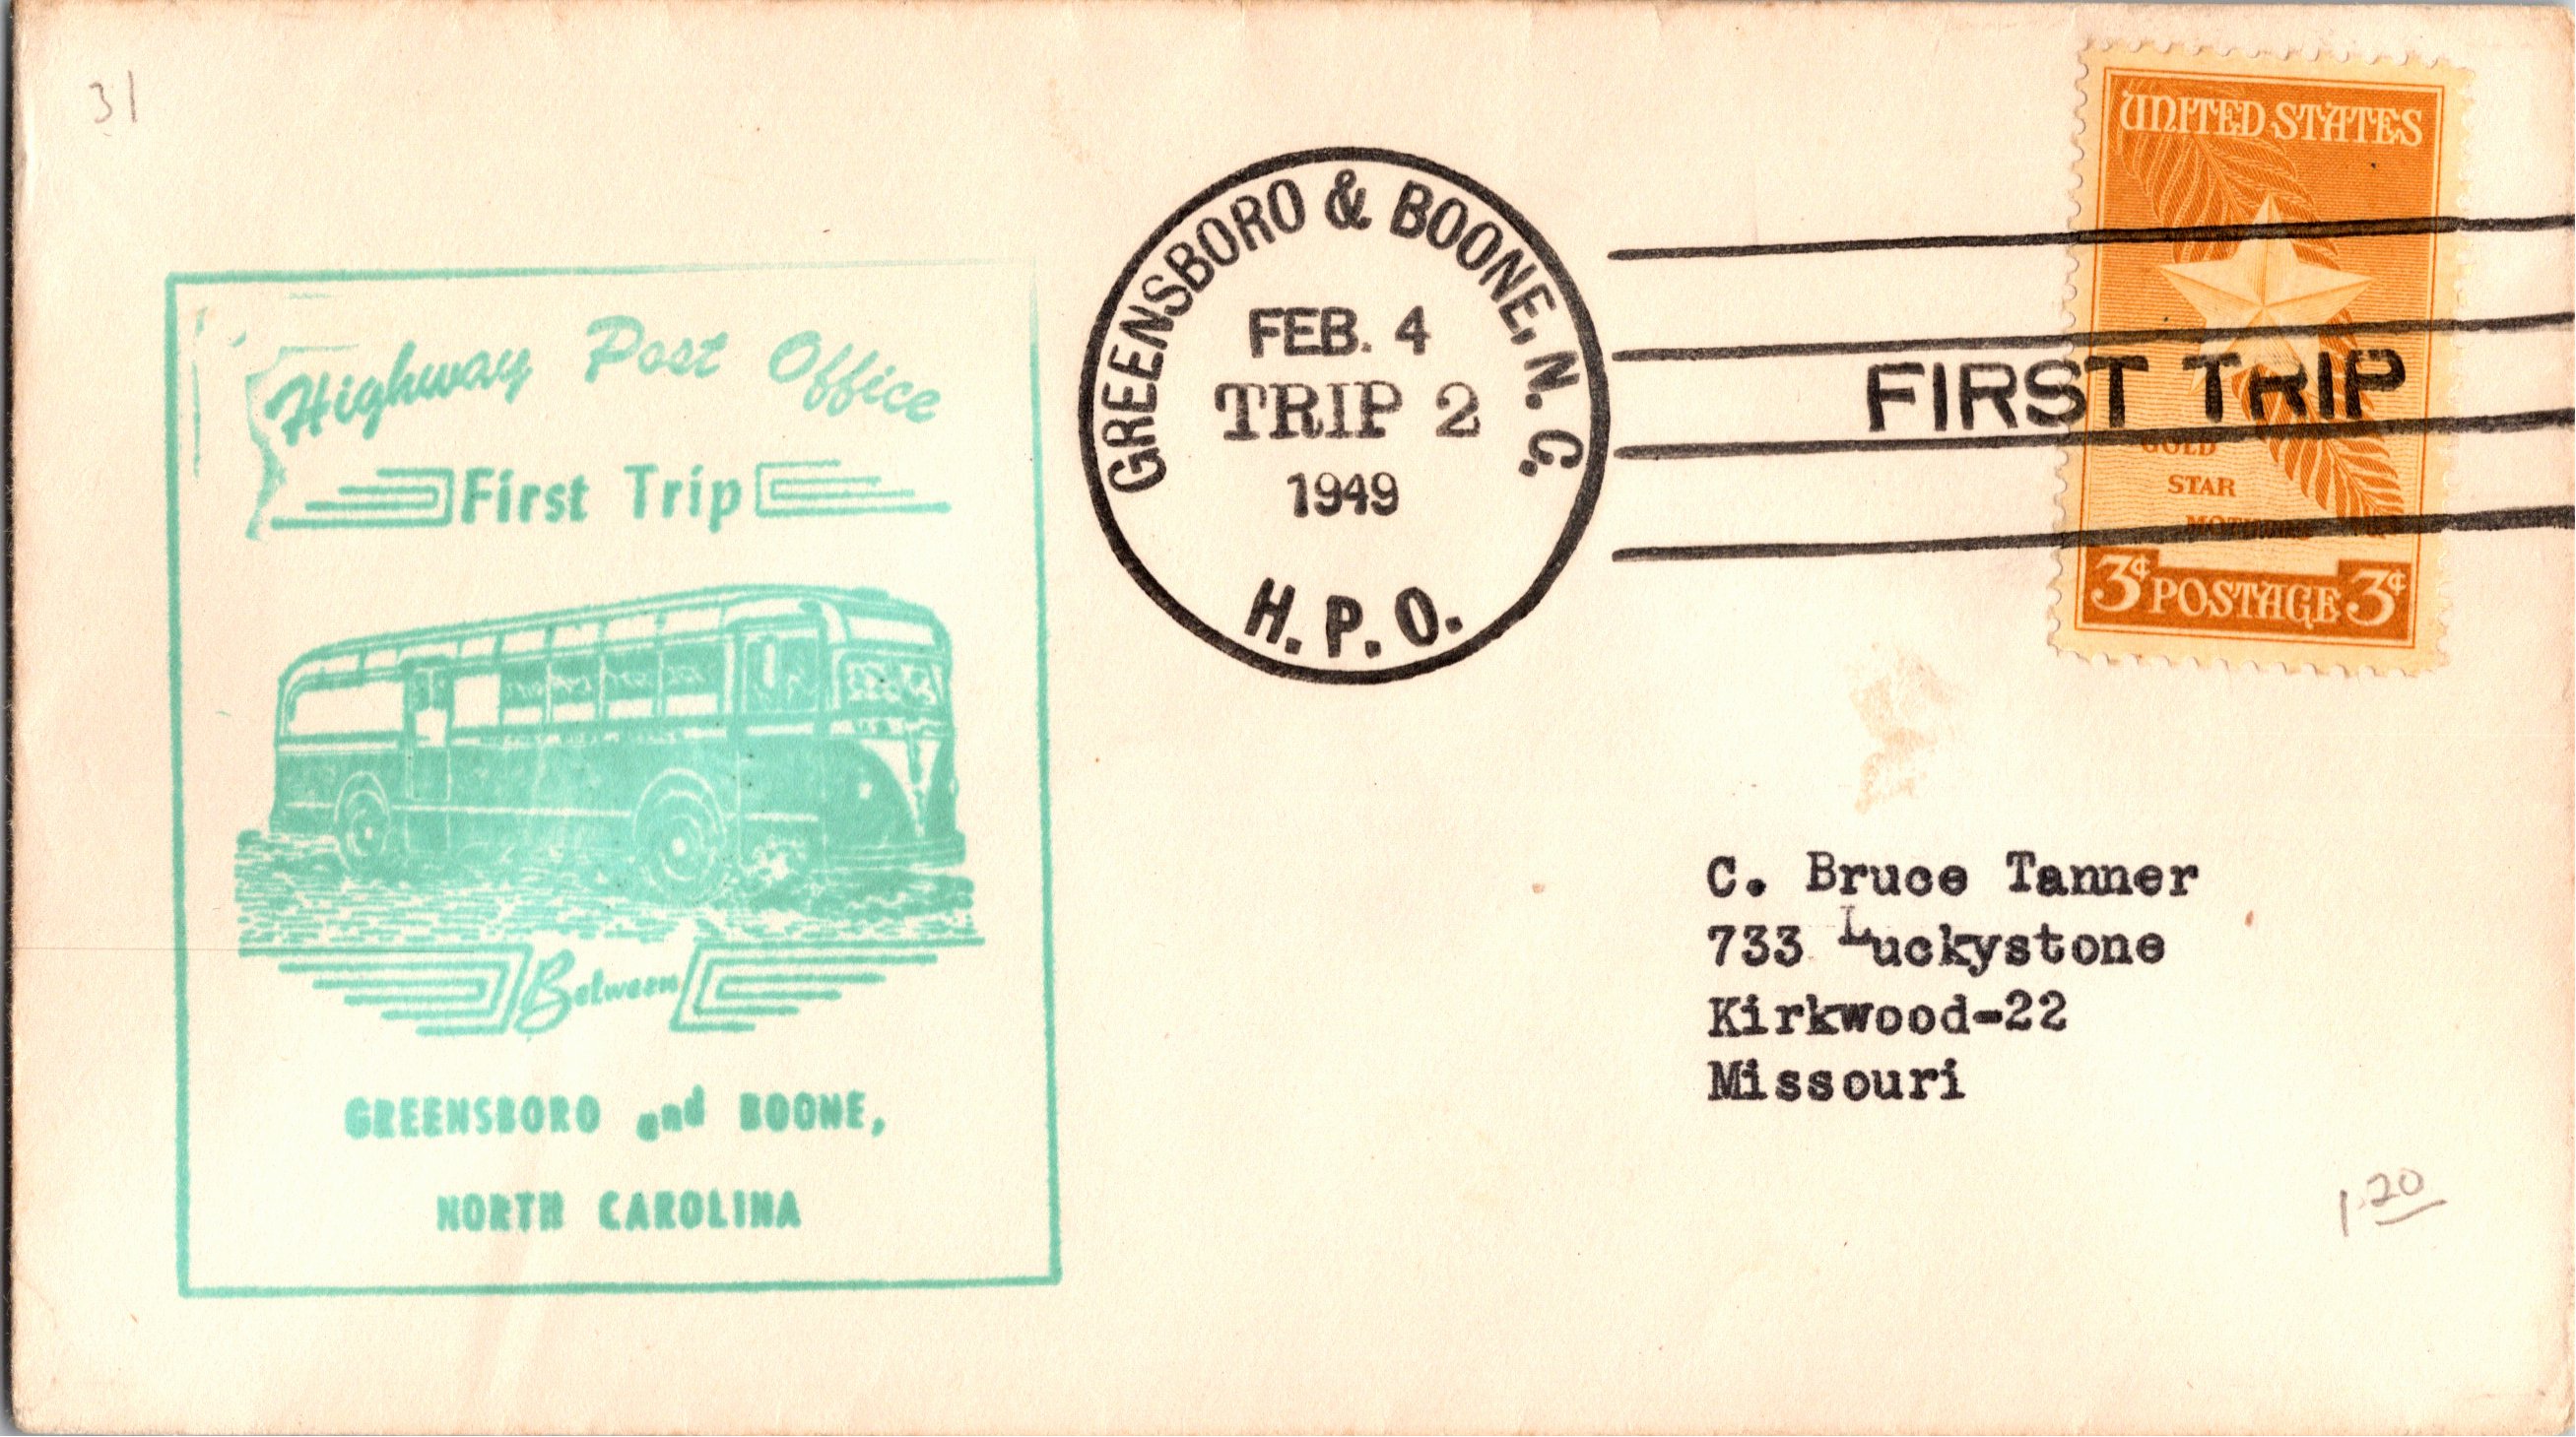 31
Highway Post Office
First Trip
Between
GREENSBORO and BOONE,
NORTH CAROLINA
GREENSBORO & BOONE, N. C.
FEB. 4
TRIP 2
1949
H. P. O.
FIRST TRIP
UNITED STATES
GOLD
STAR
3¢ POSTAGE 3¢
C. Bruce Tanner
733 Luckystone
Kirkwood-22
Missouri
1.20